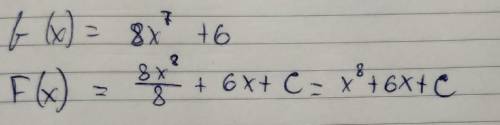 f(x) = 8x⁷ + 6
F(x) = 8x⁸/8 + 6x + C = x⁸ + 6x + C